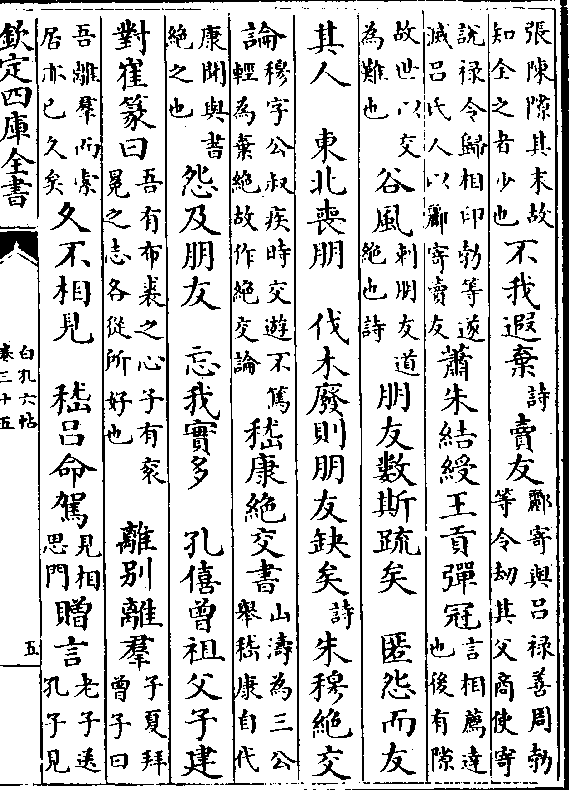 張陳隙其末故知全之者少也不我遐棄詩賣友酈寄與吕禄善周勃等令刼其父商使寄
說禄令歸相印勃等遂滅吕氏人以酈寄賣友蕭朱結綬王貢彈冠言相薦達也後有隙
故世以交為難也谷風刺朋友道絶也詩朋友數斯疏矣 匿怨而友
其人 東北喪朋 伐木廢則朋友缺矣詩朱穆絶交
論穆字公叔疾時交遊不篤輕為棄絶故作絶交論嵇康絶交書山濤為三公舉嵇康自代
康聞與書絶之也怨及朋友 忘我實多 孔僖曾祖父子建
對崔篆曰吾有布裘之心子有衮冕之志各從所好也離别離羣子夏拜曾子曰
吾離羣而索居亦已久矣久不相見 嵇吕命駕見相思門贈言老子送孔子見
欽定四庫全書
白孔六帖
卷三十五
五